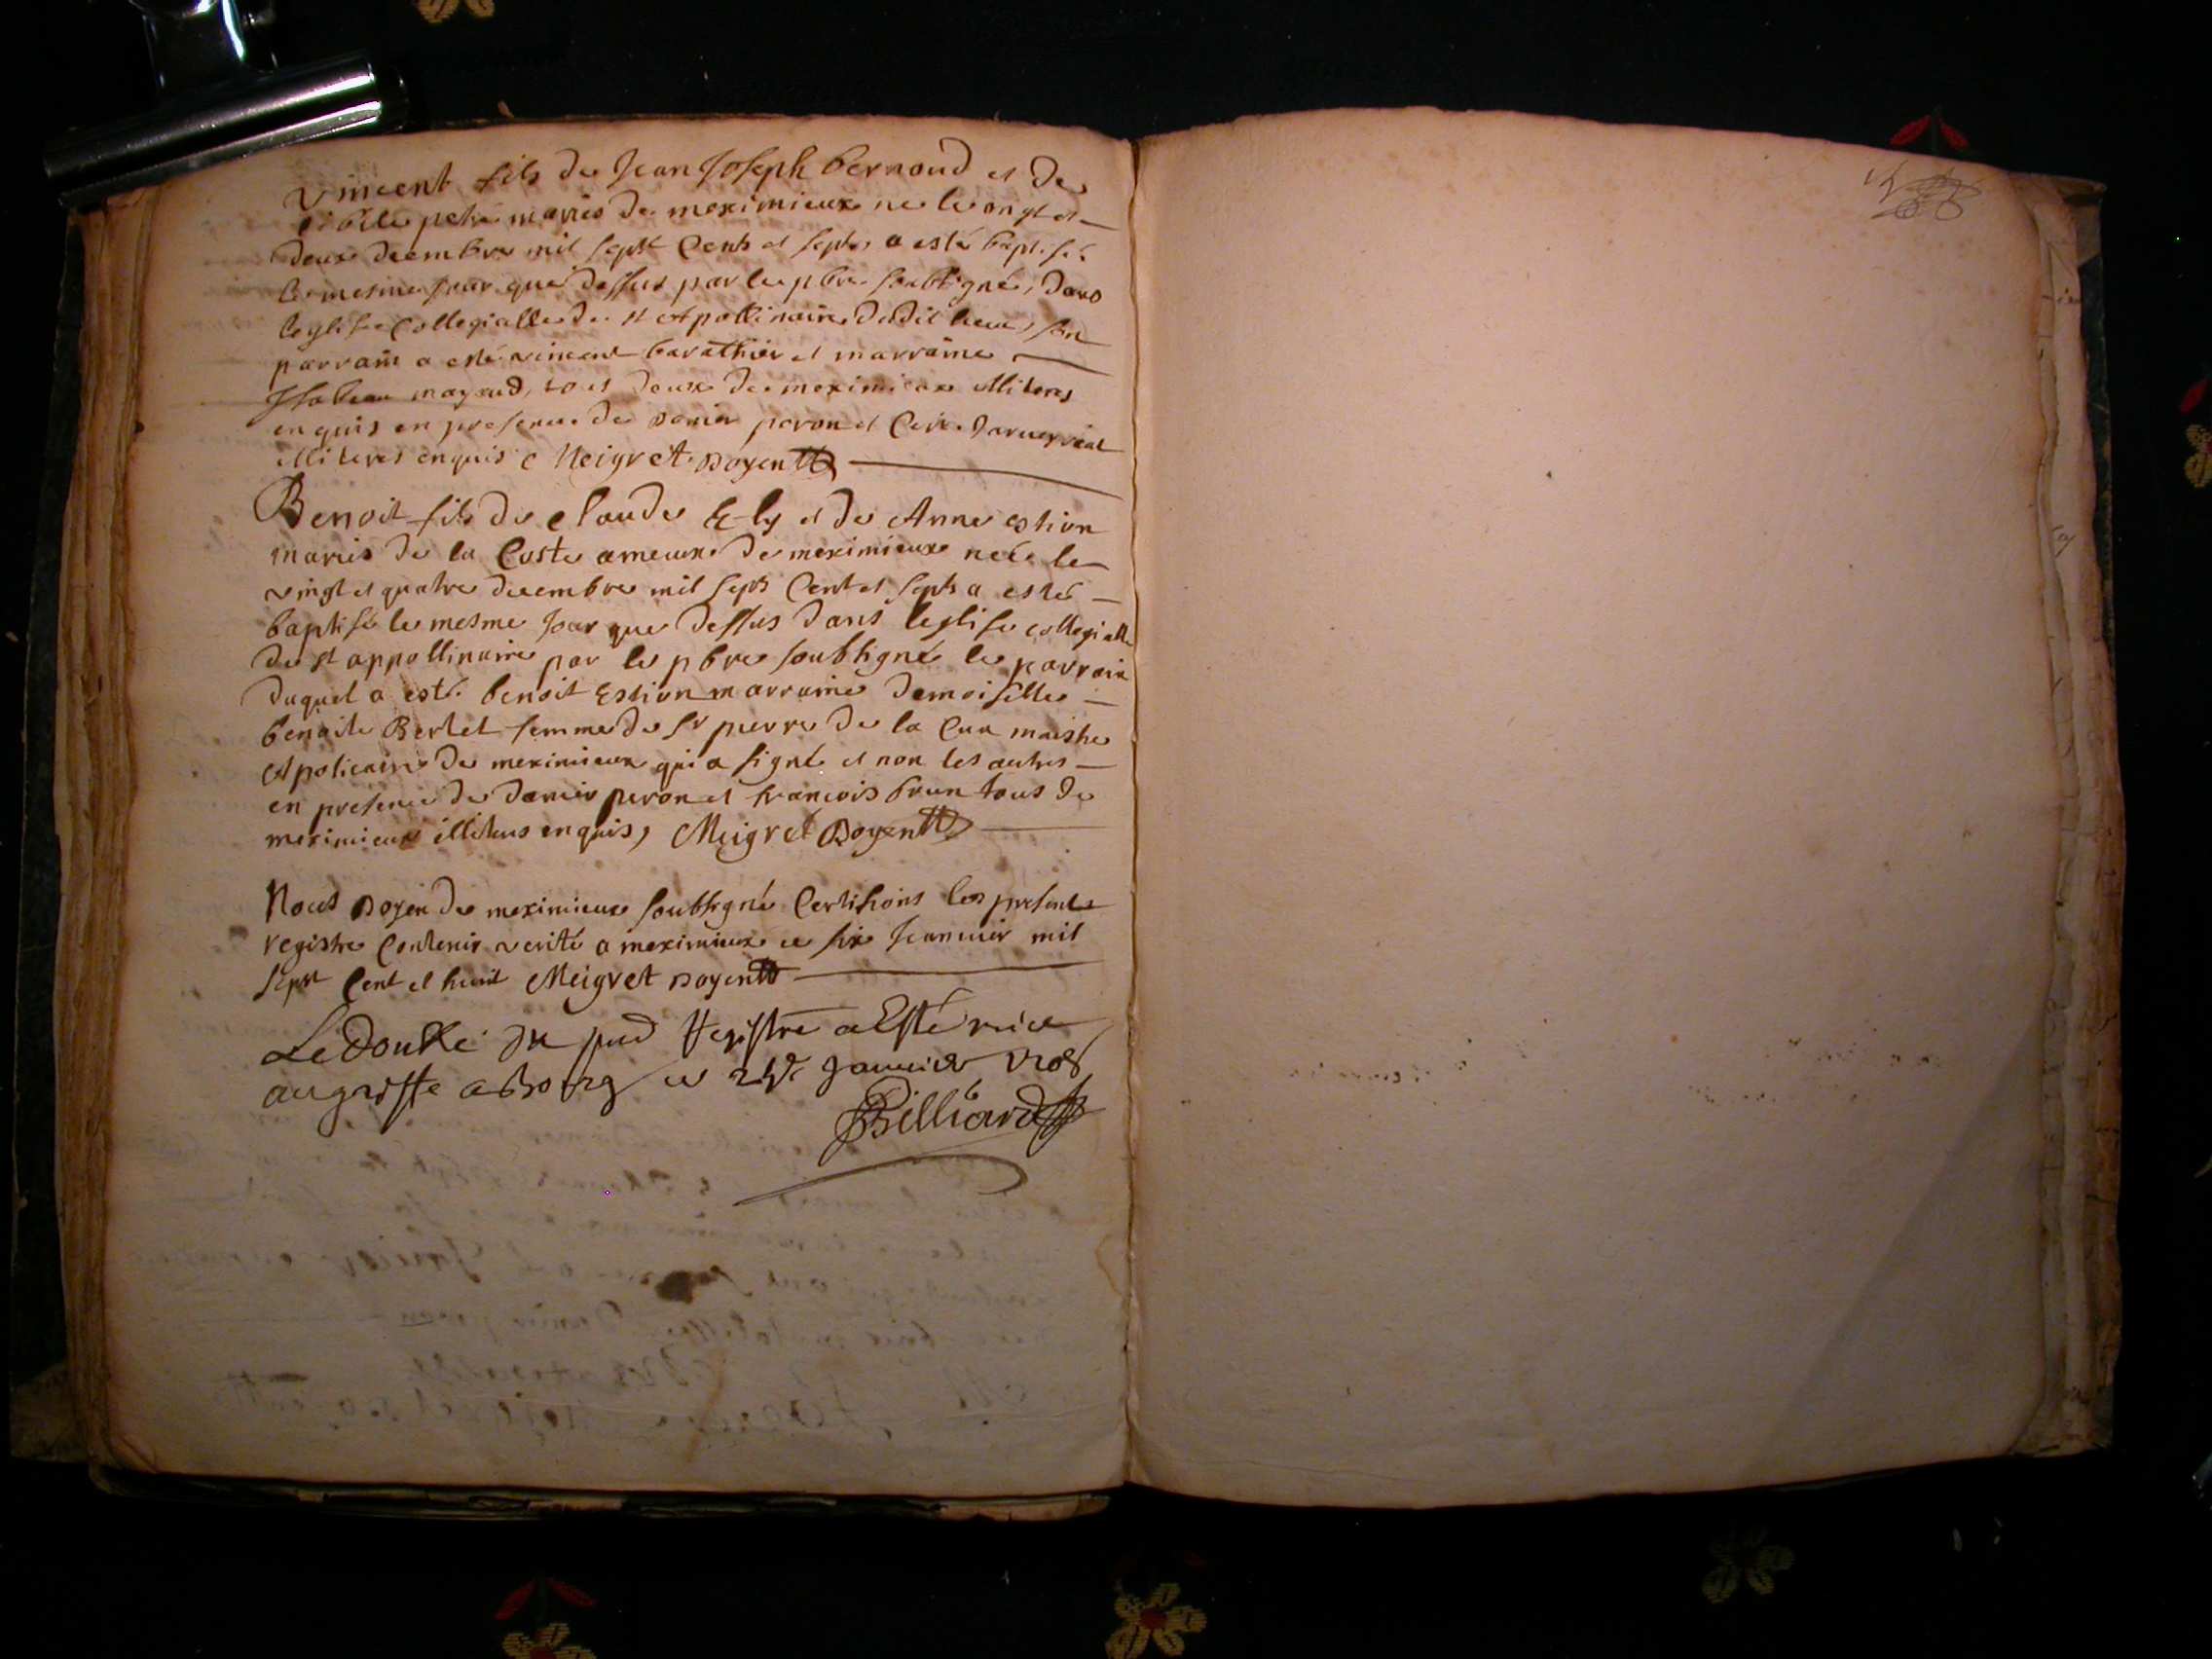 Vincent fils de Jean Joseph bernoud et de
petré mariés de meximieux né le vingt et
deux decembre mil sept Cents et septs a esté baptisé
le mesme jour que dessus par le pbre soubsigné, dans
leglise Collegialle de st Apollinaire dudit lieu, son
parrain a esté vincent barathier et marraine
Isabeau mayaud, tous deux de meximieux illiteres
enquis en presence de Denier peron et
illiteres enquis Meigret Doyen
Benoit fils de Claude Ely et de Anne estion
mariés de la Coste ameux de meximieux né le
vingt et quatre decembre mil septs Cent et septs a esté
baptisé le mesme jour que dessus dans leglise collegialle
de st appollinaire par le pbre soubsigné le parrain
duquel a esté benoit Estion marraine demoiselle
benoite Bertet femme de sr pierre de la Cua maistre
Apoticaire de meximieux qui a signé et non les autres
en presence de denier peron et francois brun tous de
meximieux illiteres enquis, Meigret Doyen
Nous Doyen de meximieux soubsigné Certifions les present
registre Contenir verité a meximieux ce six Jeanvier mil
sept Cent et huit Meigret Doyen
Le double du pnt Registre a Esté mis
au greffe a Bourg ce 24e Janvier 1708
Billiard